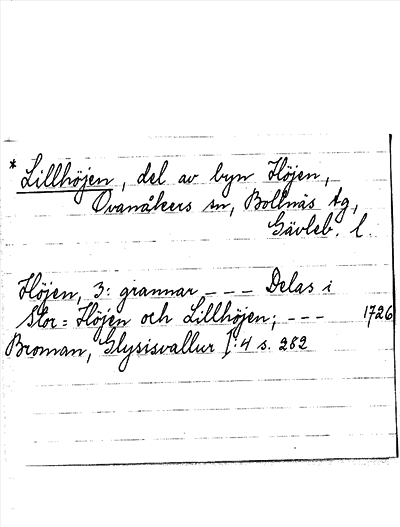 * Lillhöjen, del av byn Höjen,
Ovanåkers sn, Bollnäs tg,
Gävleb. l.
Höjen, 3: grannar --- Delas i
Stor=Höjen och Lillhöjen; --- 1726
Broman, Glysisvallur I:4 s. 282